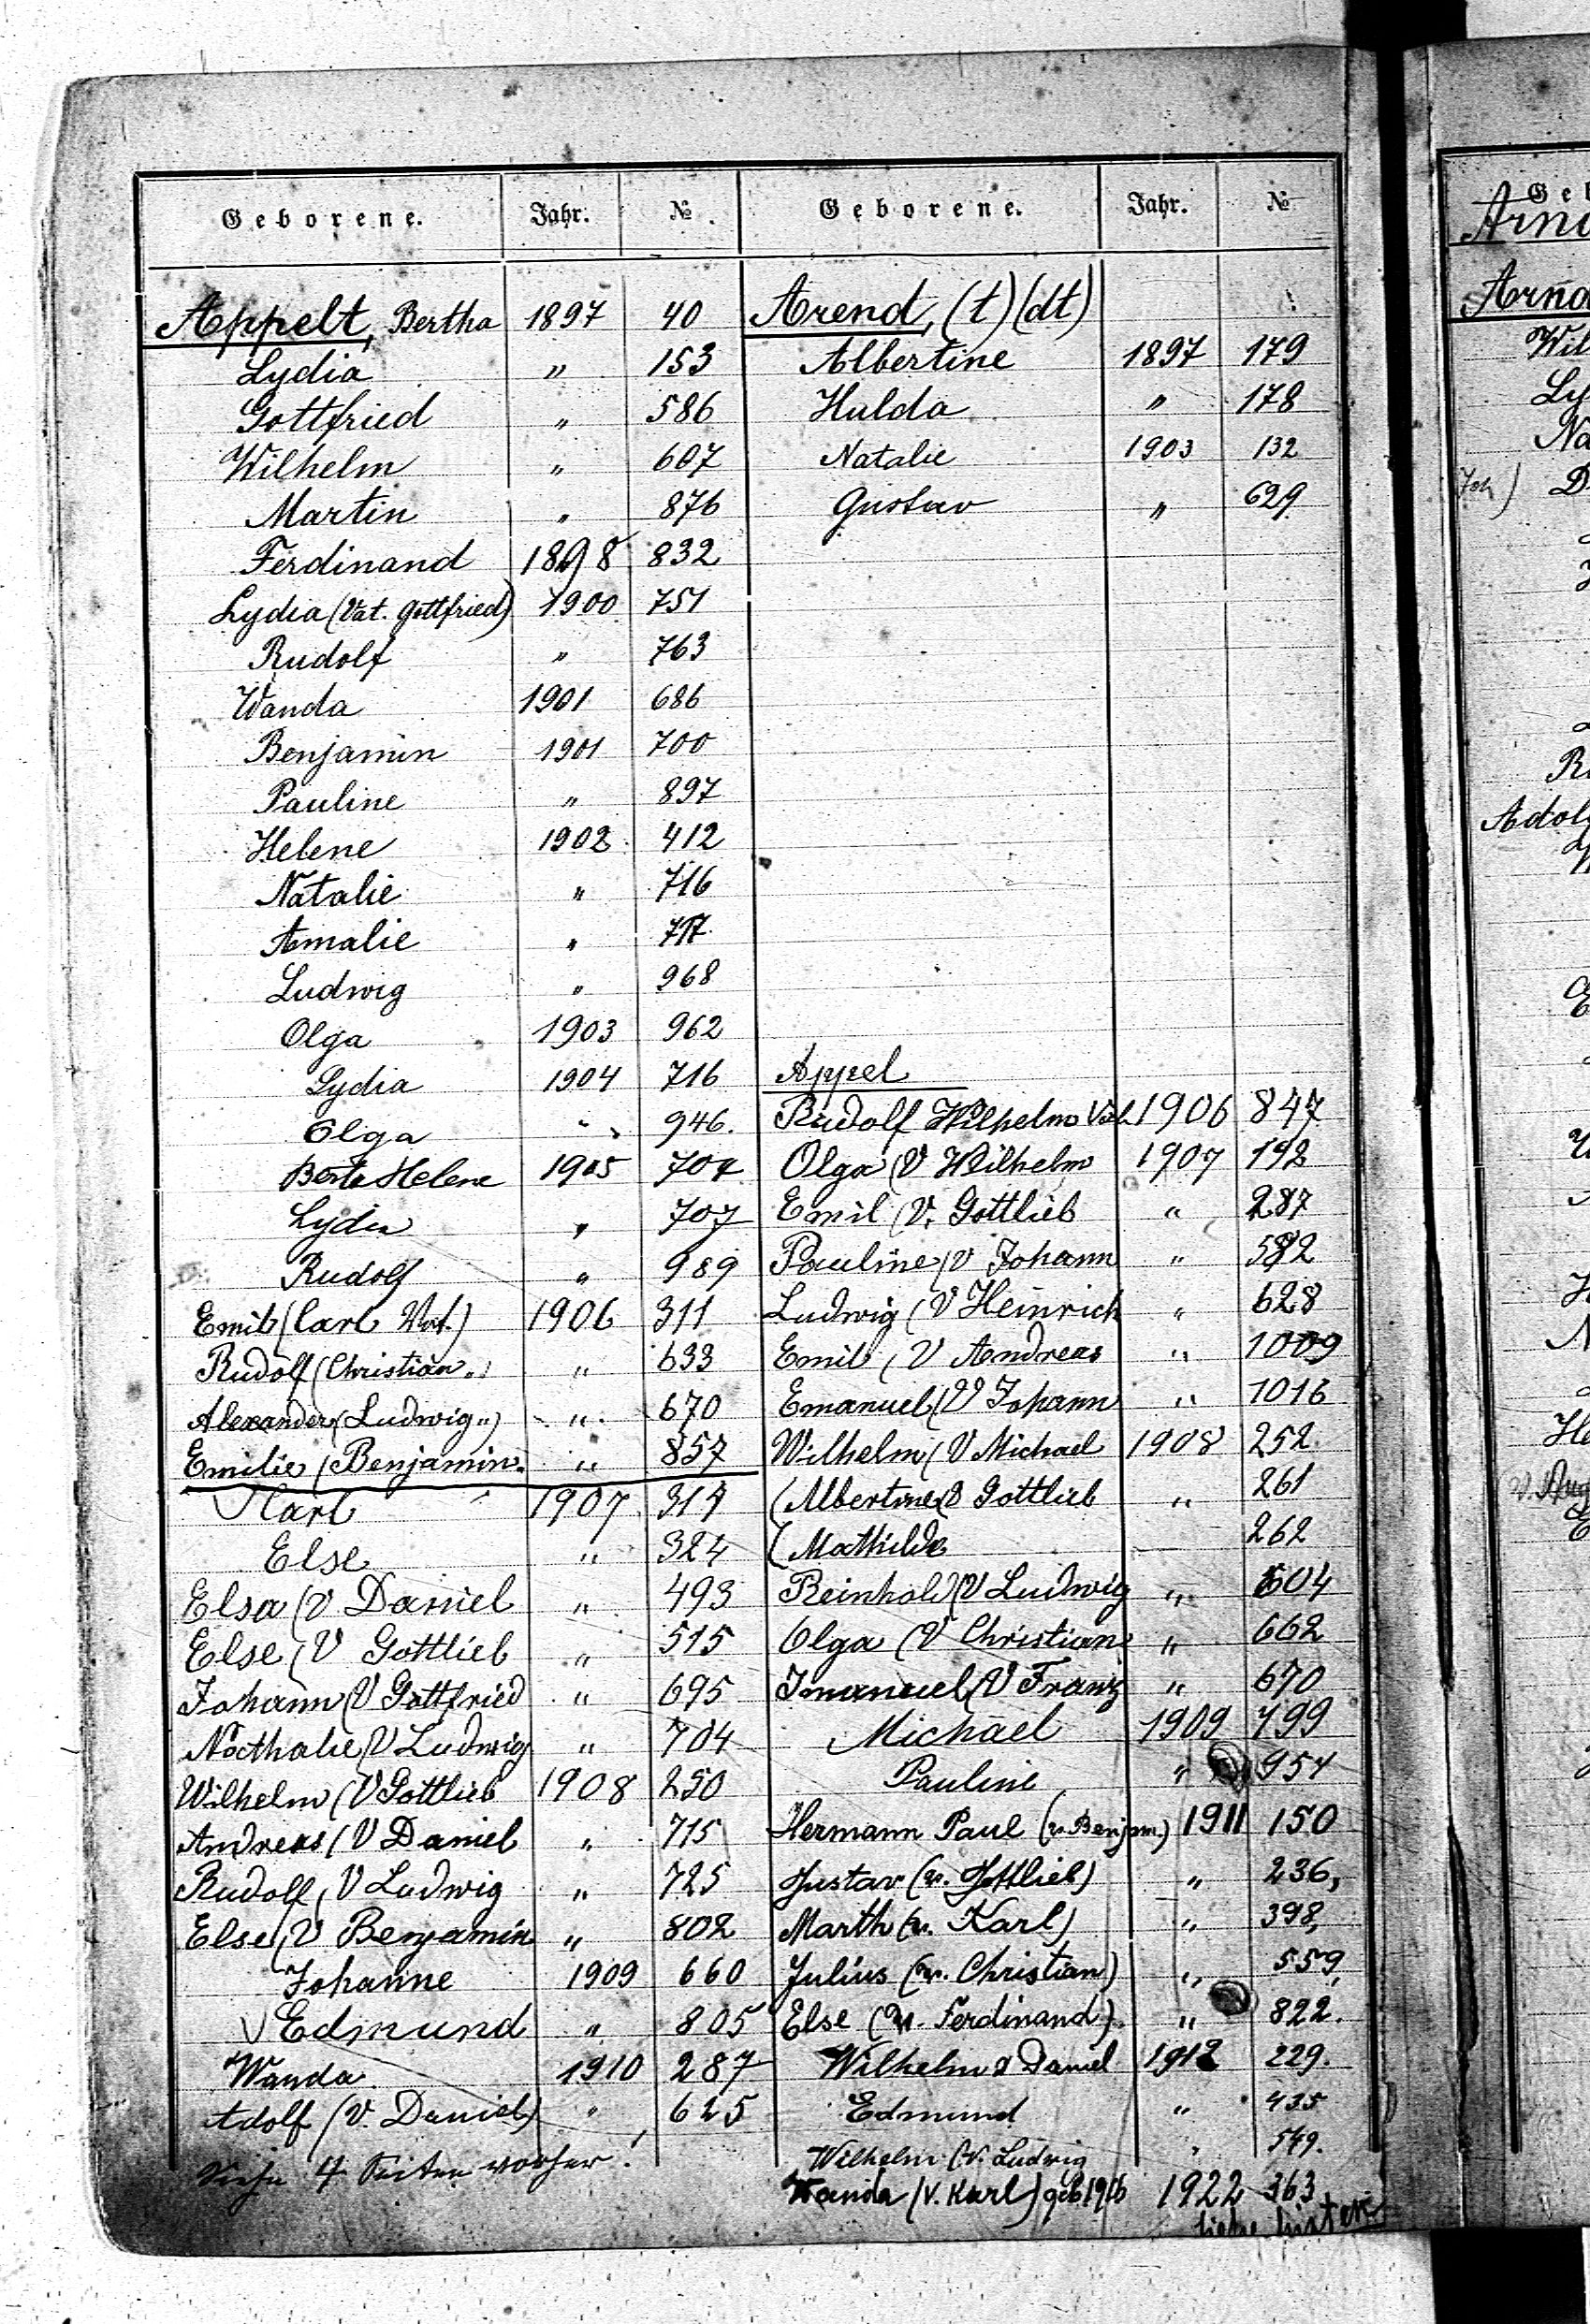 Geborene. Jahr. №
Appelt, Bertha 1897 40
Lydia " 153
Gottfried " 586
Wilhelm " 607
Martin " 876
Ferdinand 1898 832
Lydia (Vat. Gottfried) 1900 751
Rudolf " 763
Wanda 1901 686
Benjamin 1901 700
Pauline " 897
Helene 1902 412
Natalie " 716
Amalie " 717
Ludwig " 968
Olga 1903 962
Lydia 1904 716
Olga " 946.
Berta Helene 1905 704
Lydia " 707
Rudolf " 989
Emil (Carl Vat.) 1906 311
Rudolf (Christian ") " 633
Alexander (Ludwig ") " 670
Emilie (Benjamin " " 857
Karl 1907 317
Else " 324
Elsa (V Daniel " 493
Else (V Gottlieb " 515
Johann (V Gottfried " 695
Nathalie (V Ludwig " 704
Wilhelm (V Gottlieb 1908 250
Andreas (V Daniel " 715
Rudolf (V Ludwig " 725
Else (V Benjamin " 802
Johanne 1909 660
Edmund " 805
Wanda 1910 287
Adolf (V. Daniel) " 625
Siehe 4 Seiten vorher!
Geborene. Jahr. №
Arend, (t) (dt)
Albertine 1897 179
Hulda " 178
Natalie 1903 132
Gustav " 629
Appel
Rudolf Wilhelm Vat. 1906 847
Olga (V Wilhelm 1907 192
Emil (V. Gottlieb " 287
Pauline (V Johann " 582
Ludwig (V Heinrich " 628
Emil (V Andreas " 1009
Emanuel (V Johann " 1016
Wilhelm (V Michael 1908 252
(Albertine (V Gottlieb " 261
(Mathilde 262
Reinhold (V Ludwig " 604
Olga (V Christian " 662
Imanuel (V Franz " 670
Michael 1909 799
Pauline " 954
Hermann Paul (v. Benjam.) 1911 150
Gustav (v. Gottlieb) " 236,
Marth (v. Karl) " 398,
Julius (v. Christian) " 559,
Else (v. Ferdinand) " 822.
Wilhelm V Daniel 1912 229.
Edmund " 435
Wilhelm (V. Ludwig " 549.
Wanda (V. Karl) geb 1916 1922 363
siehe hinten
Geb
Arnd
Arnd
Wil
Ly
Na
Joh) D
R
Adolf
W
E
H
N
He
v. Aug
E